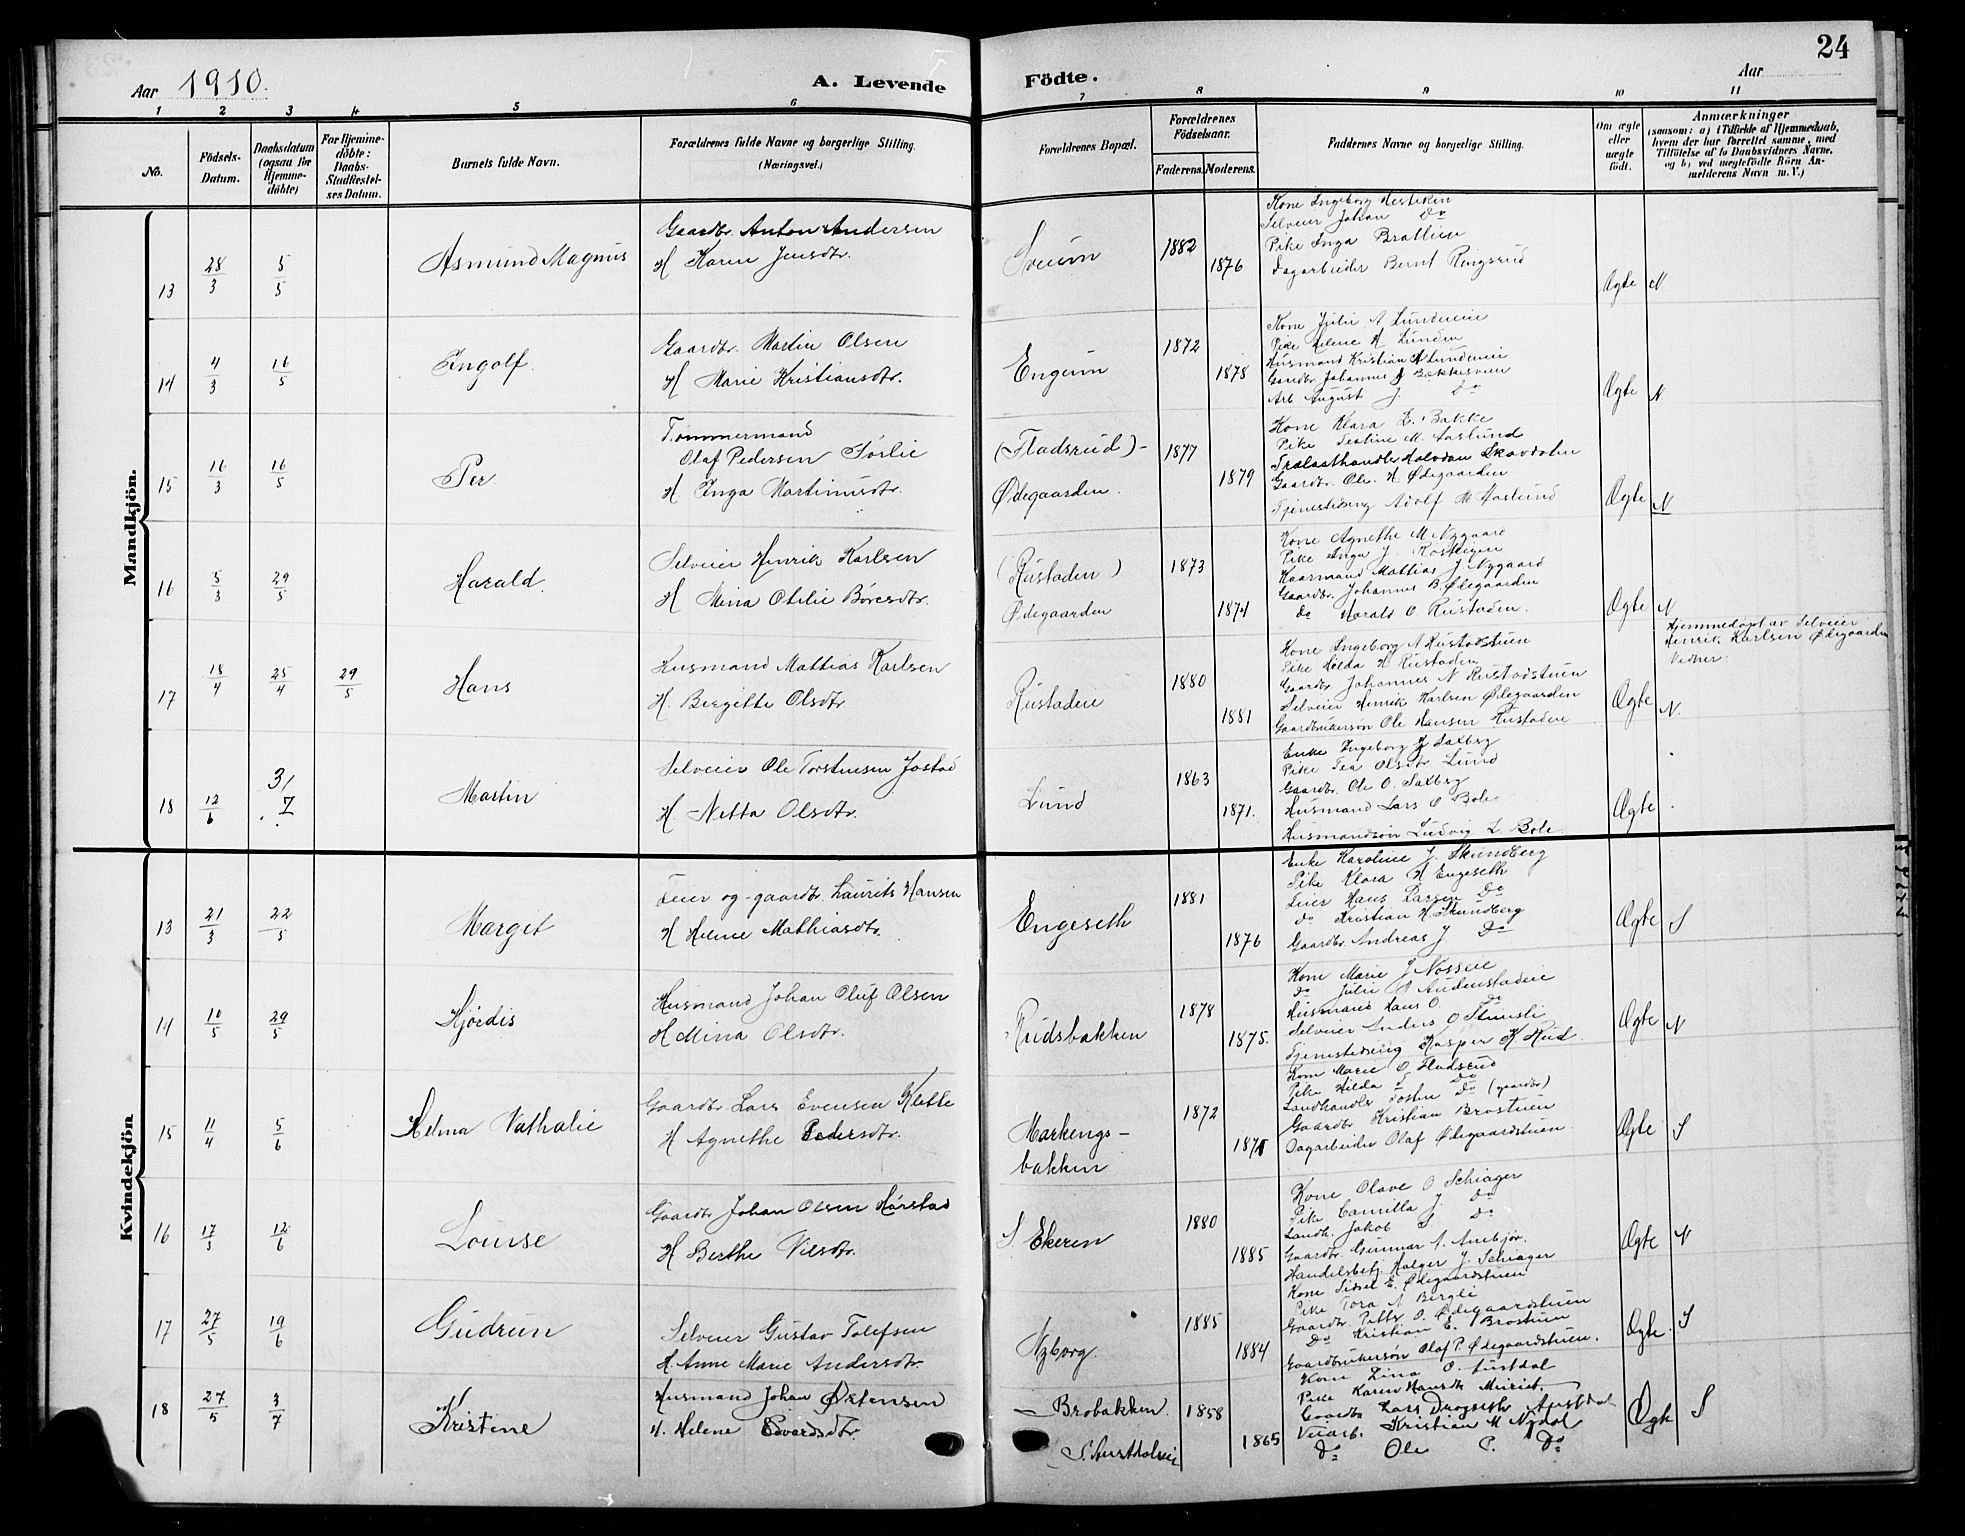 24
Aar 1910.
A. Levende Födte.
Aar
1 2 3 4 5 6 7 8 9 10 11
No.
Födsels-Datum.
Daabsdatum (ogsaa for Hjemme-döbte)
For Hjemme-döbte: Daabs-Stadfæstel-ses Datum.
Barnets fulde Navn.
Forældrenes fulde Navne og borgerlige Stilling. (Næringsvei.)
Forældrenes Bopæl.
Forældrenes Födselsaar.
Faderens. Moderens.
Faddernes Navne og borgerlige Stilling.
Om ægte eller uægte født.
Anmærkninger
(saasom: a) i Tilfælde af Hjemmedaab, hvem der har forrettet samme, med Tilföielse af to Daabsvidners Navne. og b) ved uægtefödte Börn Anmelderens Navn m. V.)
Mandkjön.
13 28/3 5/5 Asmund Magnus
Gaardbr. Anton Andersen
H Karen Jensdtr.
Sveum 1882 1876
Kone Ingeborg Hestekin
Selveier Johan Do
Pike Inga Bratlien
Dagarbeider Bernt Ringsrud
Ægte N
14 4/3 16/5 Ingolf.
Gaardbr. Martin Olsen
H Marie Kristiansdtr.
Engum 1872 1878
Kone Julie A Lundeneie
Pike Helene H Lunden
Husmand Kristian A Lundeneie
Gaardbr Johannes J Bækkesveen
Arb August J. Do
Ægte N
15 16/3 16/5 Per
Tømmermand
Olaf Pedersen Sørlie
H Inga Martinusdtr.
(Fladsrud) - Ødegaarden. 1877 1879
Kone Klara L. Bakke
Pike M. Aaslund
Trælasthandler Halvdan Skavdalen
Gaardbr. Ole H Ødegaarden
Tjenestedreng Adolf M Aaslund
Ægte N
16 5/3 29/5 Harald.
Selveier Henrik Karlsen
H Mina Otilie Børesdtr.
(Rustaden) Ødegaarden 1873 1874
Kone Agnethe M. Nygaard
Pike Inga J.
Kaarmand Mattias J Nygaard
Gaardbr. Johannes B Ødegaarden
do Harald O. Rustaden.
Ægte N
17 18/4 25/4 29/5 Hans
Husmand Mattias Karlsen
H. Bergitte Olsdtr
Rustaden 1880 1881
Kone Ingeborg N Rustadstuen
Pike Helda H Rustaden
Gaardbr. Johannes N Rustadstuen
Selveier Henrik Karlsen Ødegaarden
Gaardbrukersøn Ole Hansen Rustaden
Ægte N.
Hjemmedøpt av Selveier
Henrik Karlsen Ødegaarden
18 12/6 31/7 Martin
Selveier Ole Torstensen Jostad
H. Netta Olsdtr.
Lund 1863 1871.
Enke Ingeborg J Saxberg
Pike Tea Olsdtr Lund
Gaardbr. Ole O. Saxberg
Husmand Lars O Bole
Husmandsøn Ludvig L. Bole.
Ægte
Kvindekjön
13 21/3 22/5 Margit
Feier og gaardbr. Laurits Hansen
H Helene Mathiasdtr.
Engeseth 1881 1876
Enke Karoline J. Skundberg
Pike Klara H Engeseth
Feier Hans Larsen Do
do Kristian H. Skundberg
Gaardbr. Andreas J. Do
Ægte S
14 10/5 29/5 Hjørdis
Husmand Johan Oluf Olsen
H Mina Olsdtr.
Rudsbakken 1878 1875.
Kone Marie J Nossen
do Julie A Audenstadeie
Husmand Hans O. do
Selveier Anders O Stensli
Tjenestedreng Kasper K Rud.
Ægte N
15 11/4 5/6 Helma Nathalie
Gaardbr. Lars Evensen Klette
H Agnethe Pedersdtr.
Markengs-bakken 1872 1871
Kone Marie O. Fladsrud
Pike Hilda L Do
Landhandler Do (gaardbr)
Gaardbr Kristian Brostuen
Dagarbeider Olaf Ødegaardstuen.
Ægte S
16 17/3 12/6 Louise
Gaardbr Johan Olsen Hørstad
H Berthe Nilsdtr.
S. Ekeren 1880 1885
Kone Olave O Schiager
Pike Camilla J. do
Landh. Jakob S. Do
Gaardbr. Gunnar A. Ambjør.
Handelsbetj. Holger J. Schiager
Ægte N
17 27/5 19/6 Gudrun
Selveier Gustav Tolefsen
H. Anne Marie Andersdtr.
Nyborg 1885 1884
Kone Sidsel E. Ødegaardstuen
Pike Tora A Bergli
Gaardbr. Petter O. Ødegaardstuen
Do Kristian E. Brostuen
Gaardbrukersøn Olaf P. Ødegaardstuen.
Ægte. S
18 27/5 3/7 Kristine
Husmand Johan Østensen
H. Helene Edvardsdtr.
Brobakken 1858 1865
Kone Lina O. Austdal
Pike Karen Hansdtr
Gaardbr Lars Drogseth Austdal
Veiarb. Kristian M Nydal
Do Ole P. Do
Ægte S